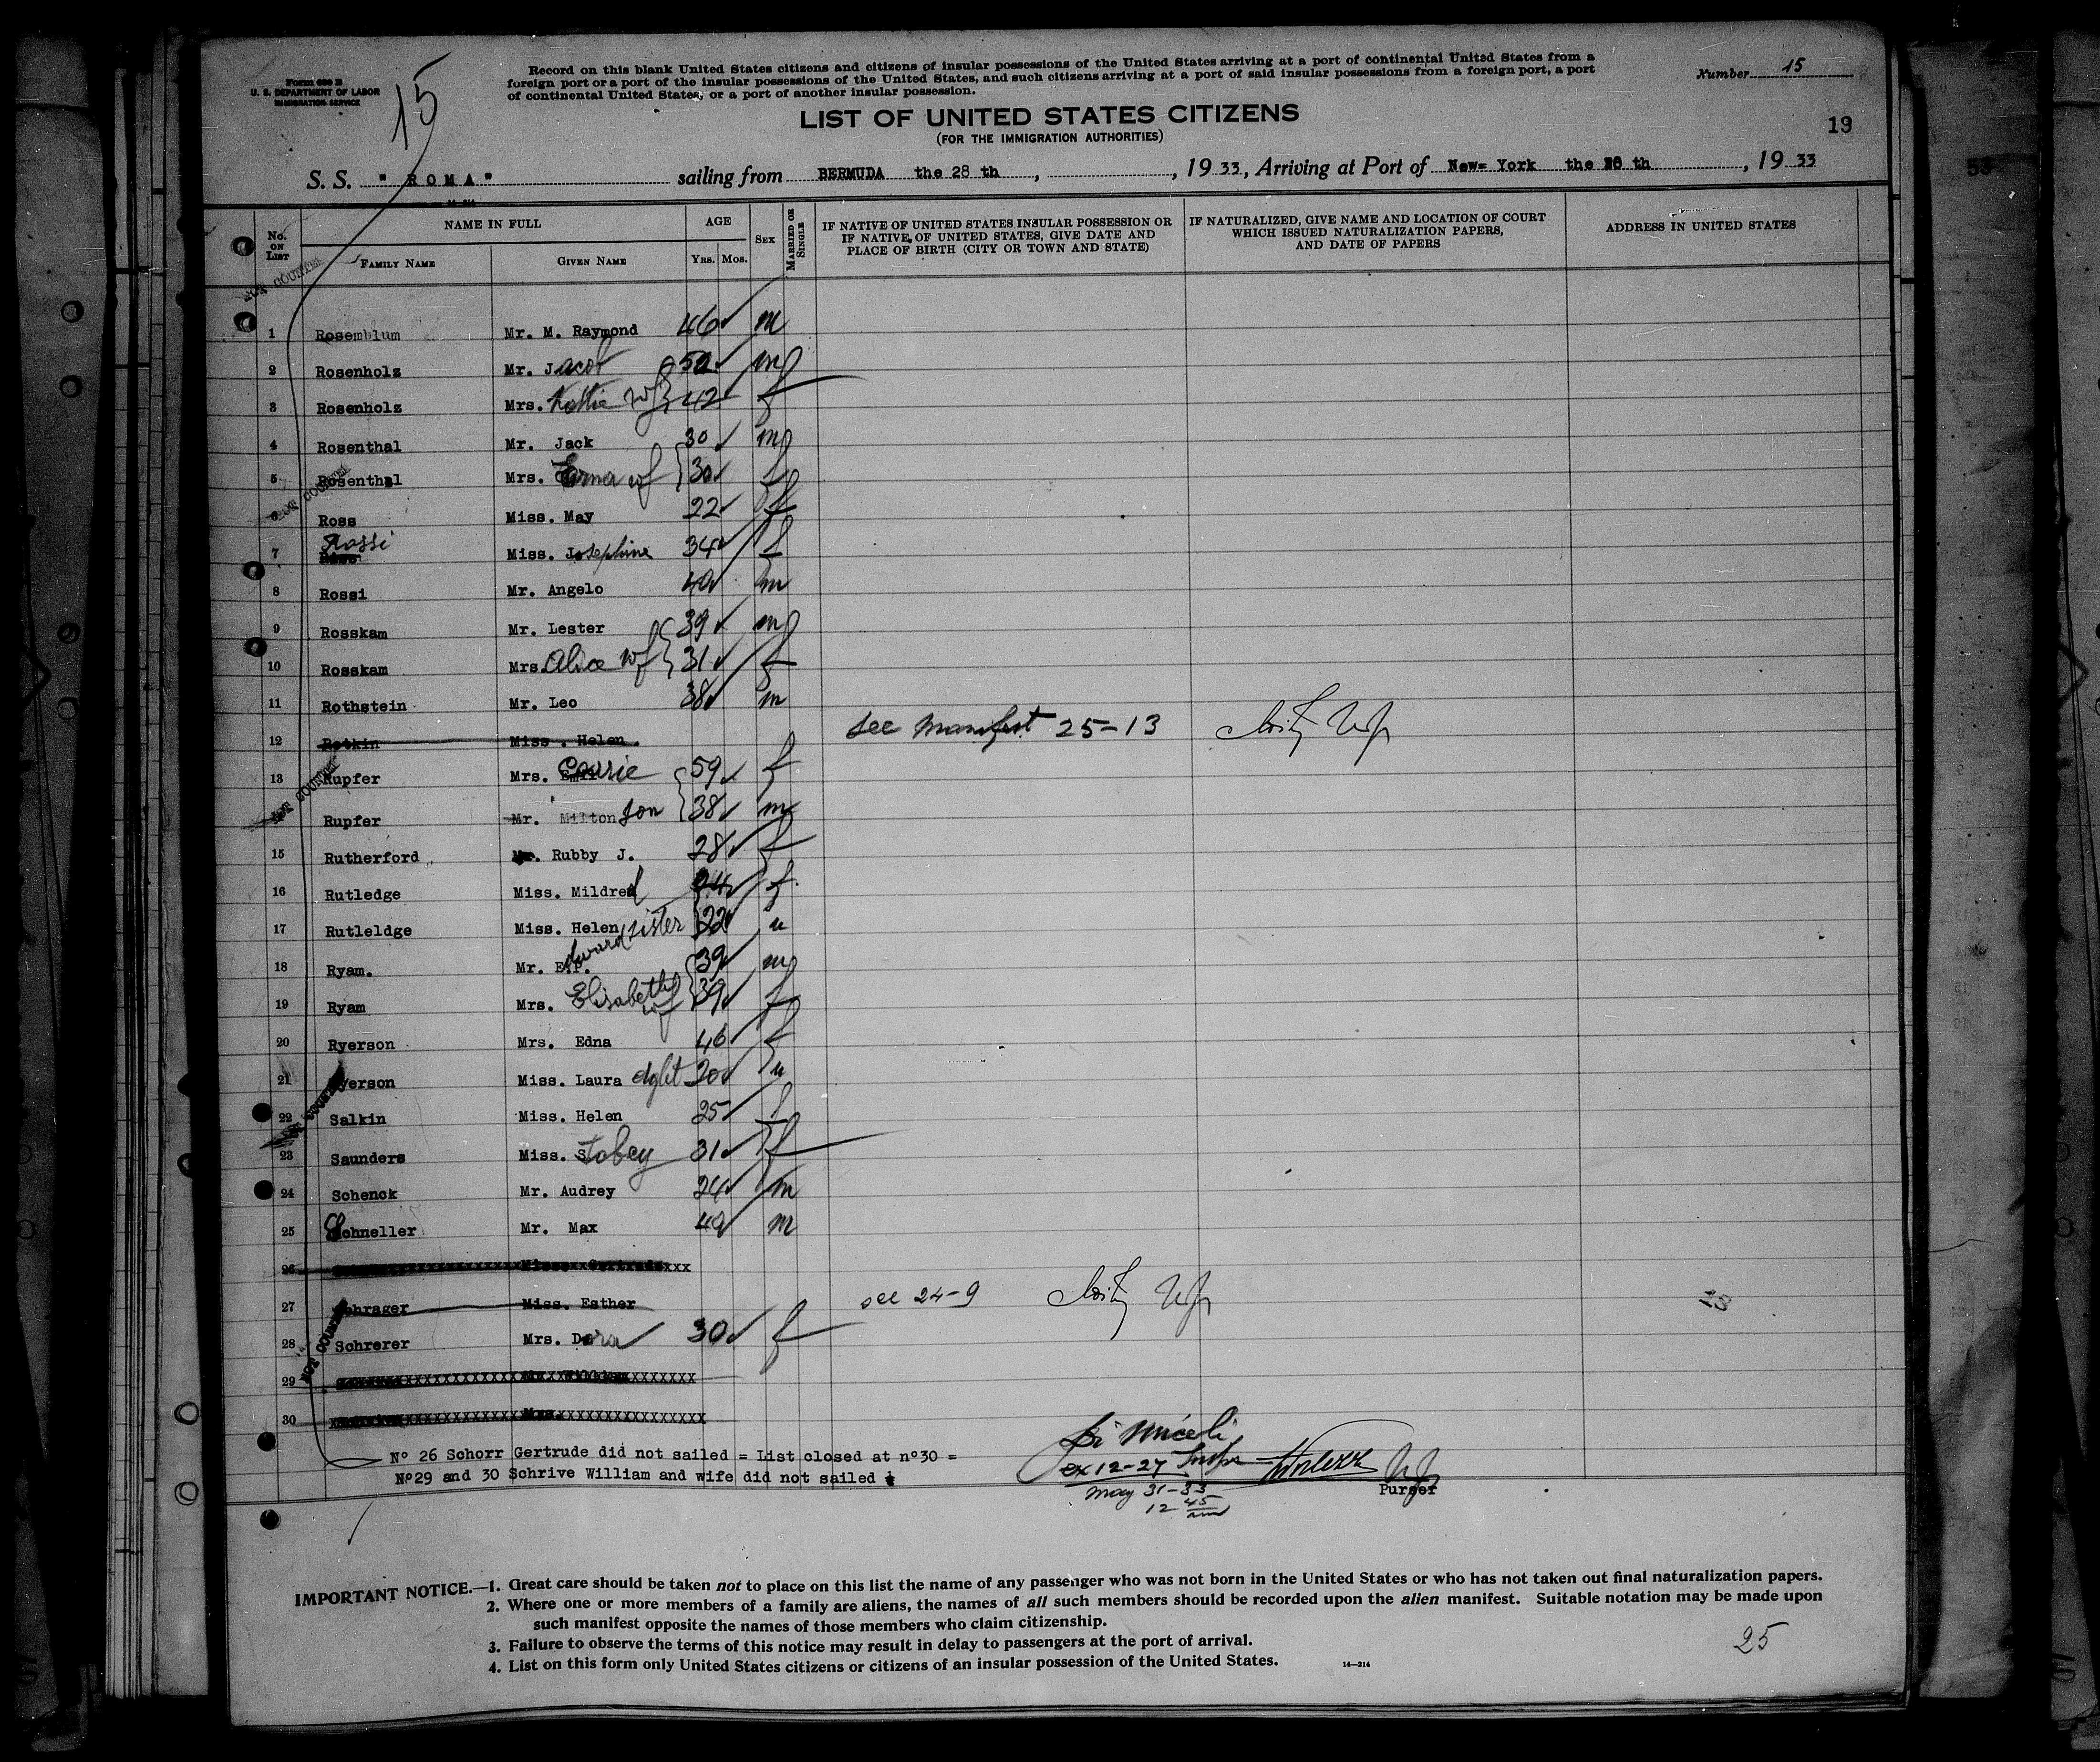 Form 630 B
U. S. DEPARTMENT OF LABOR
IMMIGRATION SERVICE
15
Record on this blank United States citizens and citizens of insular possessions of the United States arriving at a port of continental United States from a
foreign port or a port of the insular possessions of the United States, and such citizens arriving at a port of said insular possessions from a foreign port, a port
of continental United States, or a port of another insular possession.
Number 15
LIST OF UNITED STATES CITIZENS
(FOR THE IMMIGRATION AUTHORITIES)
19
S. S. " ROMA" sailing from BERMUDA the 28 th , , 19 33, Arriving at Port of New= York the th , 19 33
No. ON LIST
NAME IN FULL
FAMILY NAME
GIVEN NAME
AGE
YRS. MOS.
SEX
MARRIED OR SINGLE
IF NATIVE OF UNITED STATES INSULAR POSSESSION OR
IF NATIVE OF UNITED STATES, GIVE DATE AND
PLACE OF BIRTH (CITY OR TOWN AND STATE)
IF NATURALIZED, GIVE NAME AND LOCATION OF COURT
WHICH ISSUED NATURALIZATION PAPERS,
AND DATE OF PAPERS
ADDRESS IN UNITED STATES
1 Rosemblum Mr. M. Raymond 46 m
2 Rosenholz Mr. Jacob 52 m
3 Rosenholz Mrs. wf 42 f
4 Rosenthal Mr. Jack 30 m
5 Rosenthal Mrs. Erma wf 30 f
6 Ross Miss. May 22 f
7 Rossi Miss. Josephine 34 f
8 Rossi Mr. Angelo m
9 Rosskam Mr. Lester 39 m
10 Rosskam Mrs. Alice wf 31 f
11 Rothstein Mr. Leo 38 m
12 Rotkin Miss. Helen. see Manifest 25-13
13 Rupfer Mrs. Carrie 59 f
Rupfer Mr. Milton son 38 m
15 Rutherford Rubby J. 28 f
16 Rutledge Miss. Mildred 24 f
17 Rutleldge Miss. Helen sister 22 "
18 Ryam. Mr. E.P. dward 39 m
19 Ryam Mrs. Elisabeth wf 39 f
20 Ryerson Mrs. Edna 46 f
21 Ryerson Miss. Laura dght 20 "
22 Salkin Miss. Helen 25 f
23 Saunders Miss. Tobey 31 f
24 Schenck Mr. Audrey 24 m
25 Schneller Mr. Max m
26 Miss. Gertrude
27 Schrager Miss. Esther see 24-9
28 Schrerer Mrs. Dora 30 f
29 Mr. William
30 Mrs.
NOT COUNTED
Nº 26 Schorr Gertrude did not sailed = List closed at nº30 =
Nº29 and 30 Schrive William and wife did not sailed
Di Miceli
ex 12-27 Insp
May 31-33
12 45 am
Purser
IMPORTANT NOTICE.—1. Great care should be taken not to place on this list the name of any passenger who was not born in the United States or who has not taken out final naturalization papers.
2. Where one or more members of a family are aliens, the names of all such members should be recorded upon the alien manifest. Suitable notation may be made upon
such manifest opposite the names of those members who claim citizenship.
3. Failure to observe the terms of this notice may result in delay to passengers at the port of arrival.
4. List on this form only United States citizens or citizens of an insular possession of the United States.
14—214
25